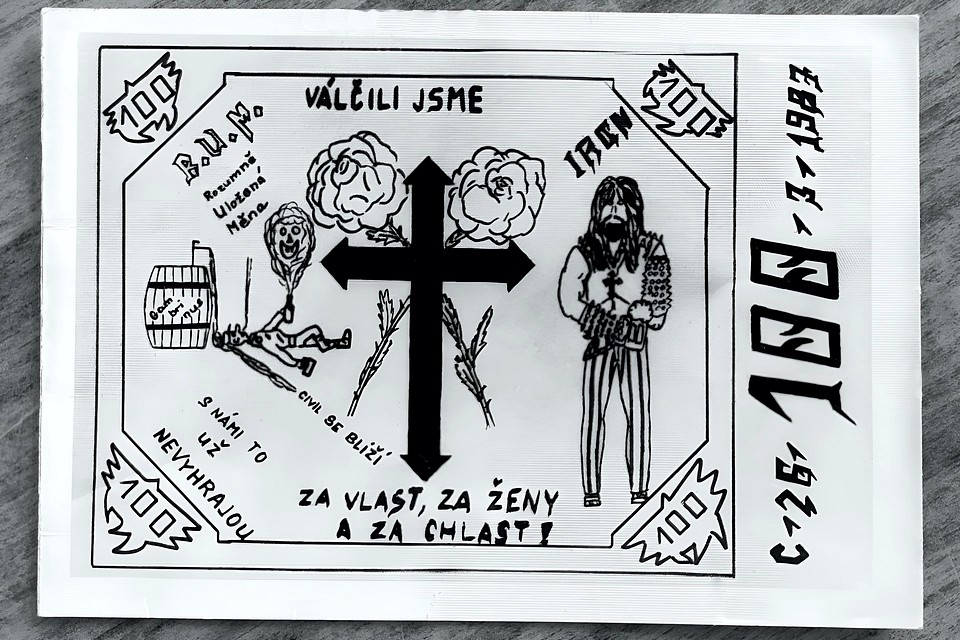 100
100
VÁLČILI JSME
B.U.M.
Rozumně
Uložená
Měna
IRON
Gam
bri
nus
CIVIL SE BLÍŽÍ
S NÁMI TO
UŽ
NEVYHRAJOU
ZA VLAST, ZA ŽENY
A ZA CHLAST!
100
100
C-26-100-3-1987